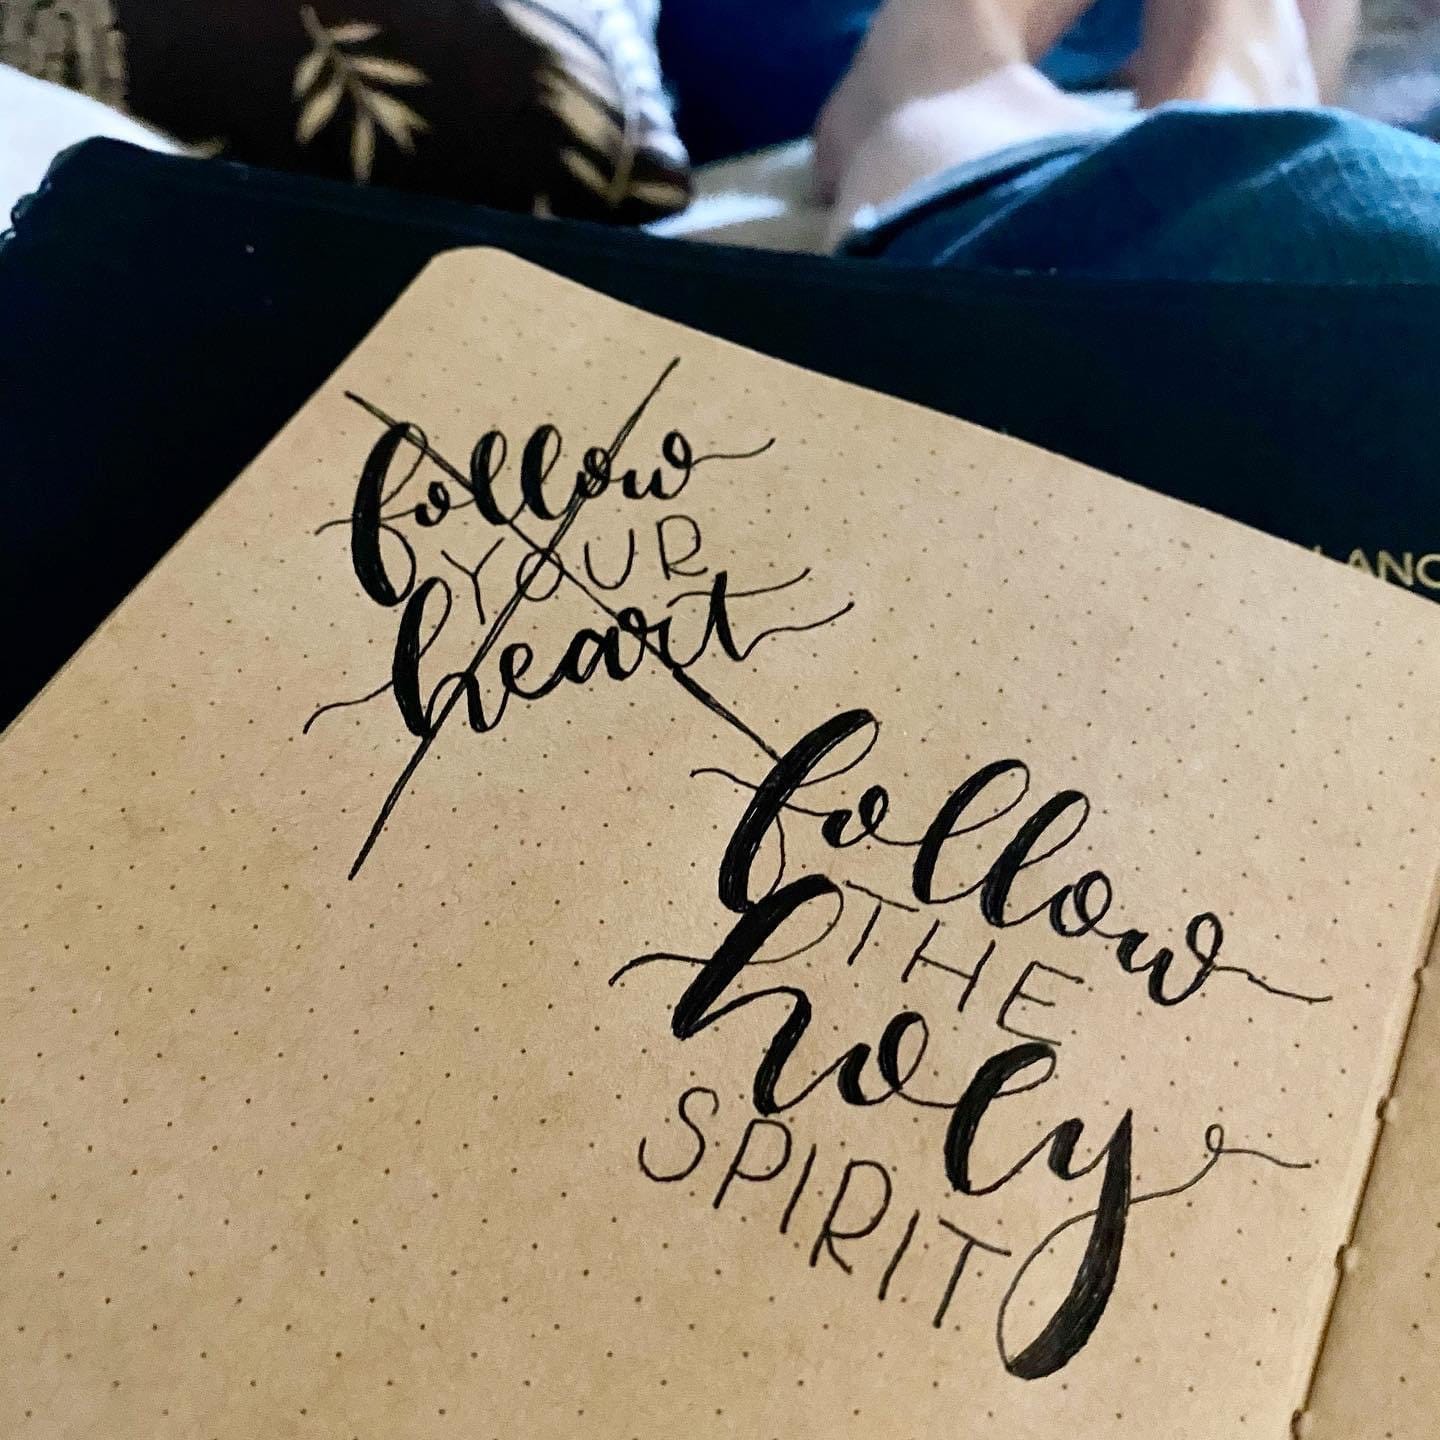 follow
YOUR
heart
follow
THE
holy
SPIRIT